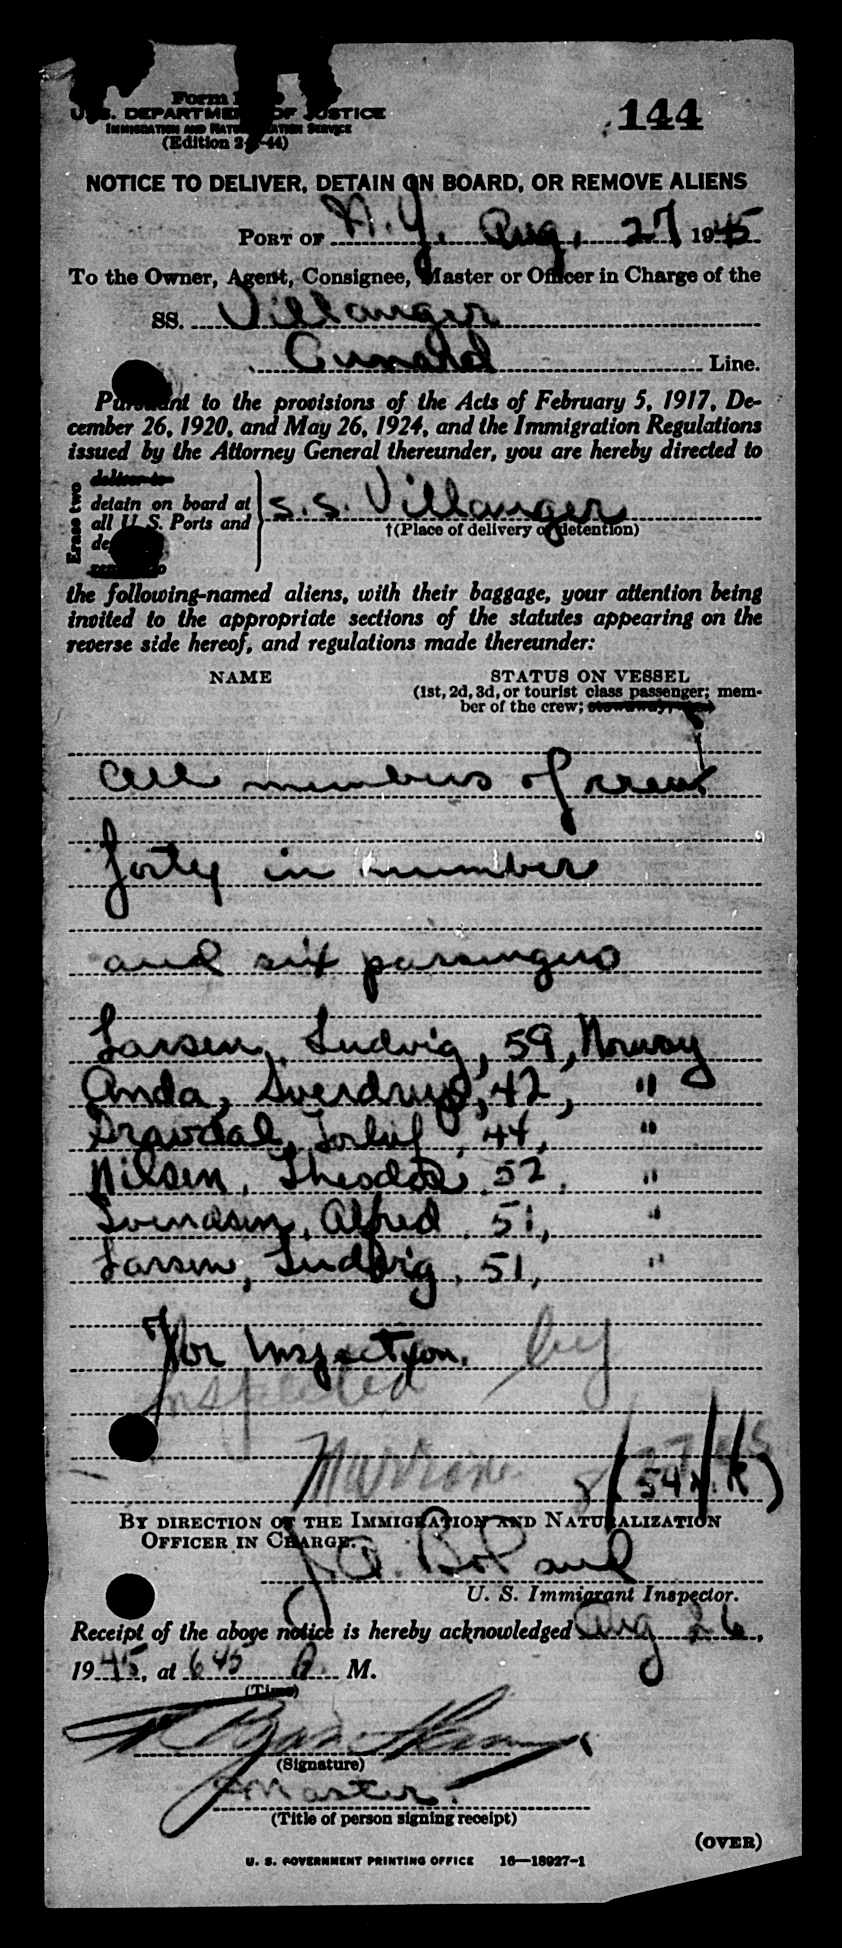 Form
U.S. DEPARTMENT OF JUSTICE
IMMIGRATION AND NATURALIZATION SERVICE
(Edition 2- -44)
144
NOTICE TO DELIVER, DETAIN ON BOARD, OR REMOVE ALIENS
PORT OF N.Y. Aug. 27 1945
To the Owner, Agent, Consignee, Master or Officer in Charge of the
SS. Villanger
Cunard Line.
Pursuant to the provisions of the Acts of February 5, 1917, De-
cember 26, 1920, and May 26, 1924, and the Immigration Regulations
issued by the Attorney General thereunder, you are hereby directed to
Erase two
deliver to
detain on board at
all U.S. Ports and
S.S. Villanger
†(Place of delivery or detention)
the following-named aliens, with their baggage, your attention being
invited to the appropriate sections of the statutes appearing on the
reverse side hereof, and regulations made thereunder:
NAME STATUS ON VESSEL
(1st, 2d, 3d, or tourist class passenger; mem-
ber of the crew;
All members of crew
forty in number
and six passengers
Larsen, Ludvig, 59, Norway
Anda, Sverdrup, 42, "
Dravdal, Torleif, 44, "
Nilsen, Theodor 52, "
Svendsen, Alfred 51, "
Larsen, Ludvig, 51, "
For Inspection.
Inspected by
Marrone 8/27/45
(54 N.R)
BY DIRECTION OF THE IMMIGRATION AND NATURALIZATION
OFFICER IN CHARGE.
J.A. Boland
U. S. Immigrant Inspector.
Receipt of the above notice is hereby acknowledged Aug 26,
1945, at 645 A. M.
(Time)
(Signature)
Master.
(Title of person signing receipt)
(OVER)
U. S. GOVERNMENT PRINTING OFFICE 16—18927-1